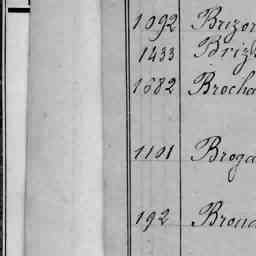 1092 Brizor
1433 Briz
1682 Brocha
1101 Broga
192 Brona